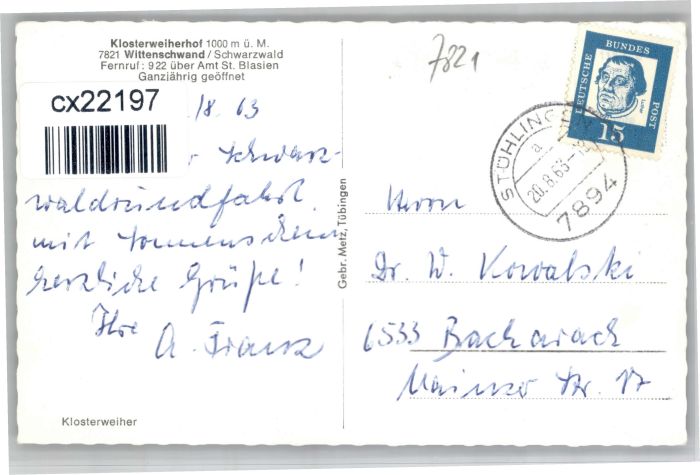 Klosterweiherhof 1000 m ü. M.
7821 Wittenschwand / Schwarzwald
Fernruf: 922 über Amt St. Blasien
Ganzjährig geöffnet
cx22197
/8. 63
Schwarz-
waldrundfahrt
mit Sonnenschein
herzliche Grüße!
Ihre
A. Franz
Klosterweiher
Gebr. Metz, Tübingen
7821
DEUTSCHE BUNDESPOST
Luther
15
STÜHLINGEN
a
20.8.63-18
7894
Herrn
Dr. W. Kowalski
6533 Bacharach
Mainzer Str. 17